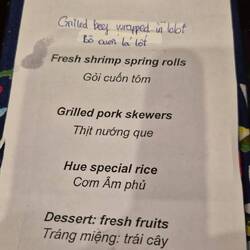 Grilled beef wrapped in lolot
Bò cuốn lá lốt
Fresh shrimp spring rolls
Gỏi cuốn tôm
Grilled pork skewers
Thịt nướng que
Hue special rice
Cơm Âm phủ
Dessert: fresh fruits
Tráng miệng: trái cây